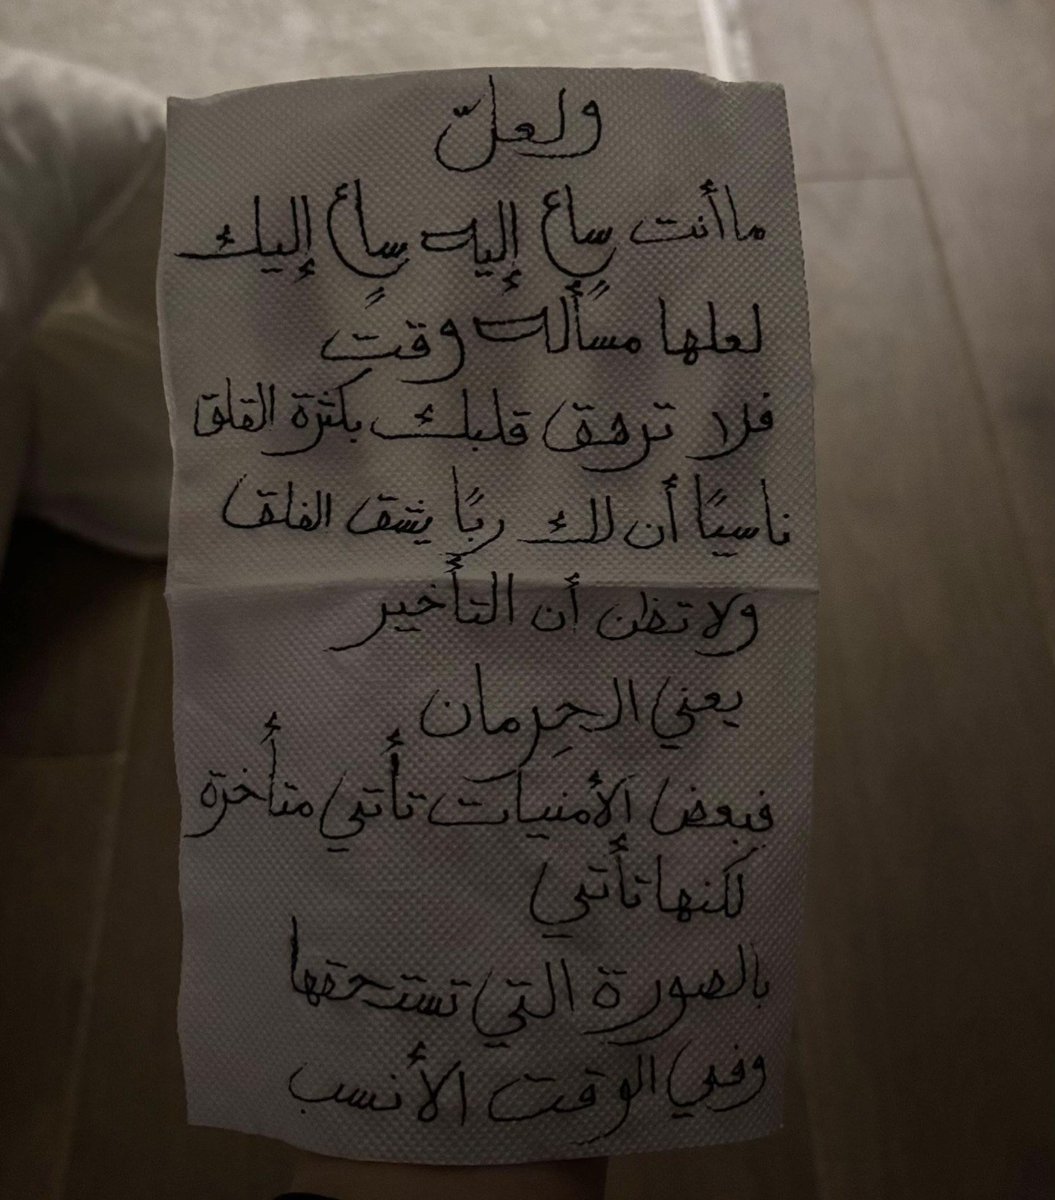 ولعلّ
ما أنت ساعٍ إليه ساعٍ إليك
لعلها مسألة وقت
فلا ترهق قلبك بكثرة القلق
ناسيًا أن لك ربًا يشق الفلق
ولا تظن أن التأخير
يعني الحِرمان
فبعض الأمنيات تأتي متأخرة
لكنها تأتي
بالصورة التي تستحقها
وفي الوقت الأنسب